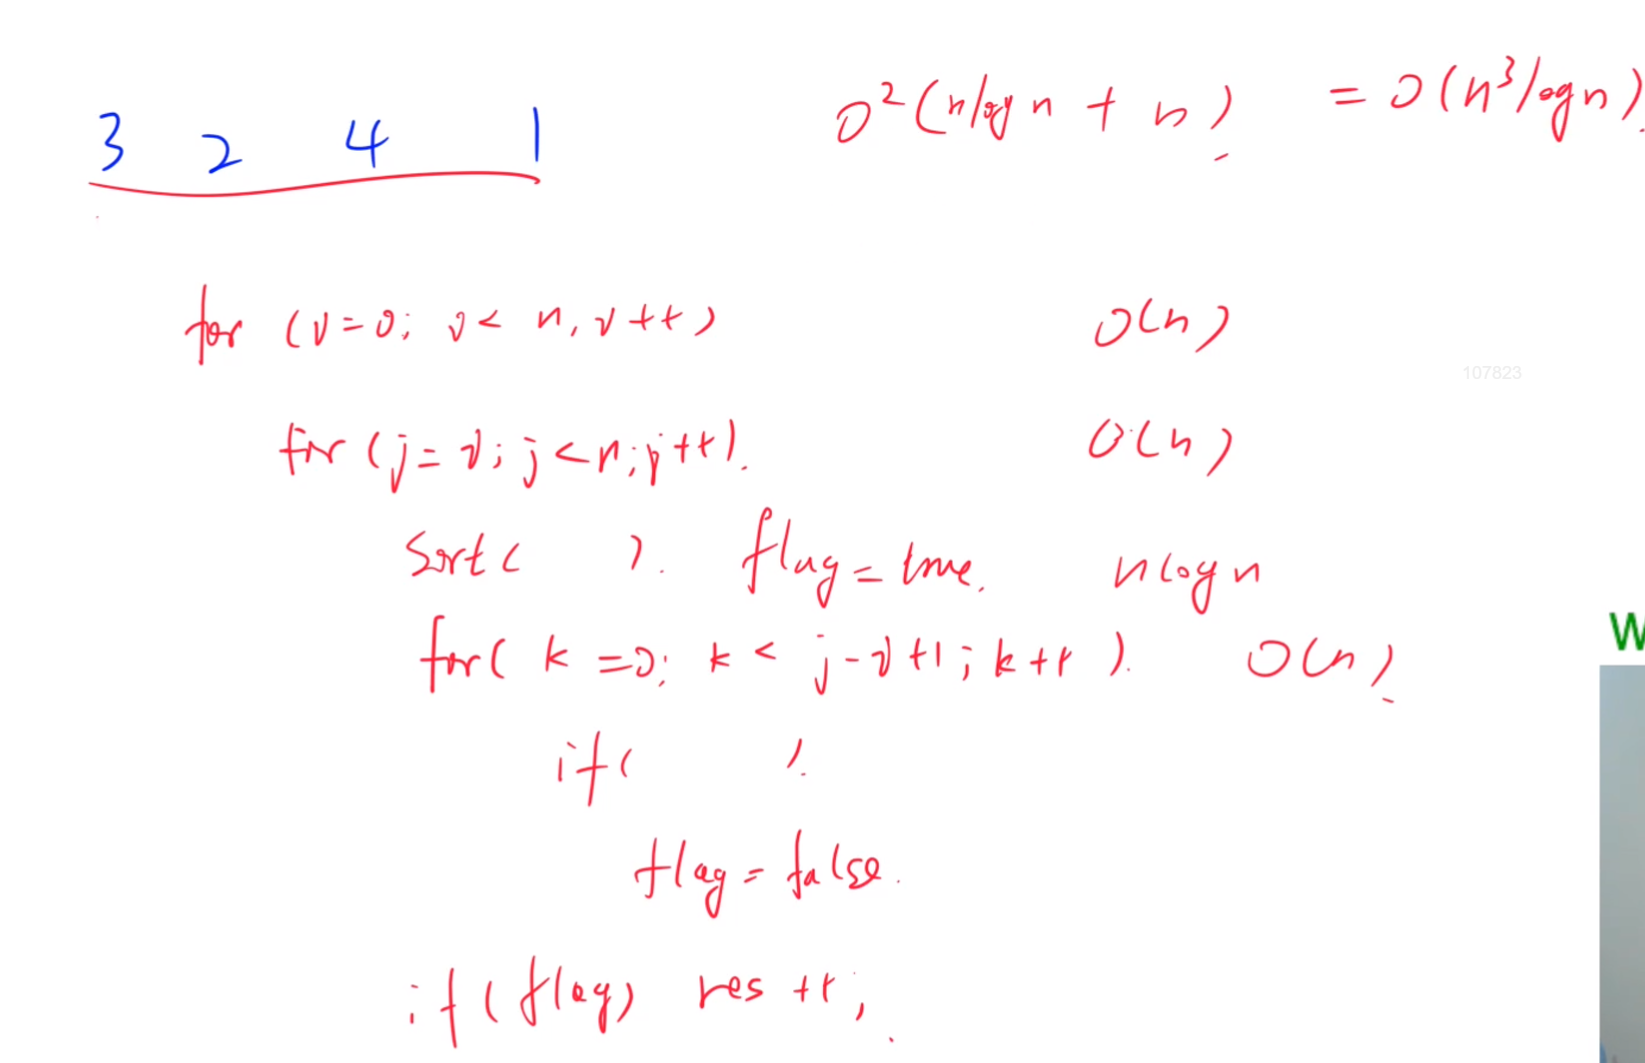 3 2 4 1
O²(nlogn + n) = O(n³logn).
for (i=0; i< n, i++) O(n)
107823
for (j=i; j<n; j++). O(n)
Sort( ). flag=true. nlogn
for( k=0; k < j-i+1; k++ ). O(n)
W
if( ).
flag=false.
if(flag) res++;